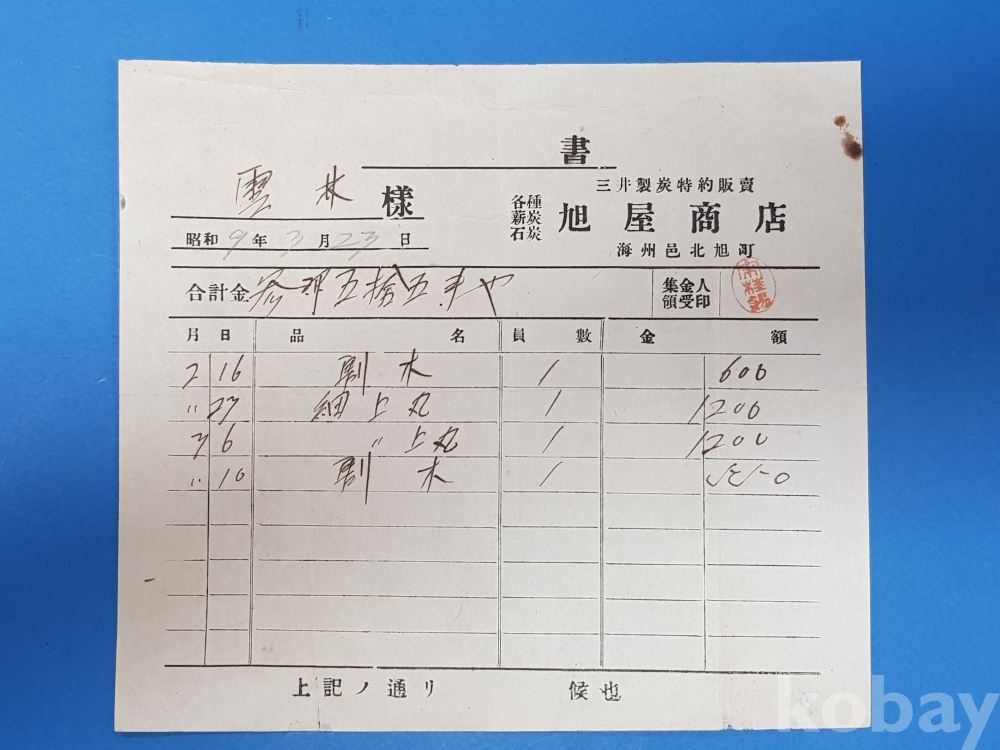 書
雲林様
三井製炭特約販賣
各種
薪炭
石炭
旭屋商店
海州邑北旭町
昭和9年3月23日
合計金 参円五拾五銭也
集金人
領受印
月 日 品名 員數 金額
2 16 割木 1 600
〃 27 細上丸 1 1200
3 6 〃上丸 1 1200
〃 10 割木 1 550
上記ノ通リ 候也
kobay